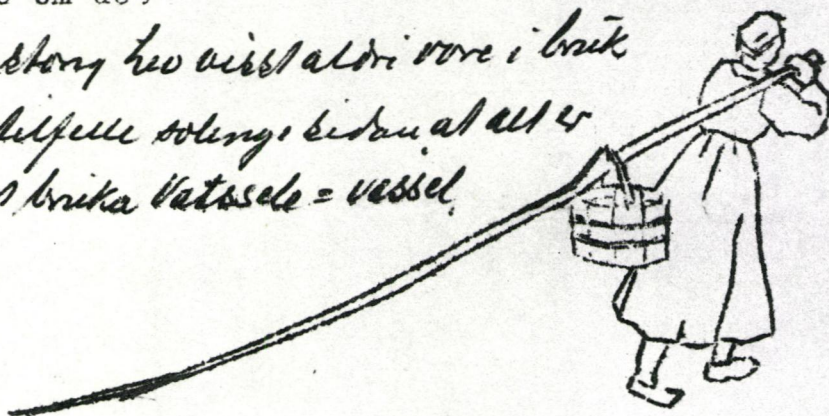 em de.
stong hev visst aldri vore i bruk
tilfelle solenge sidan at alt er
bruka Vatssele = vassel.